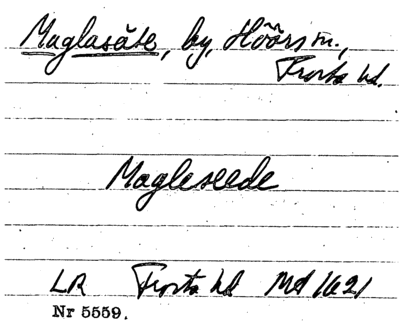 Maglasäte, by, Höörs sn.,
Frosta hd.
Magleseede
LR Frosta hd Md 1621
Nr 5559.